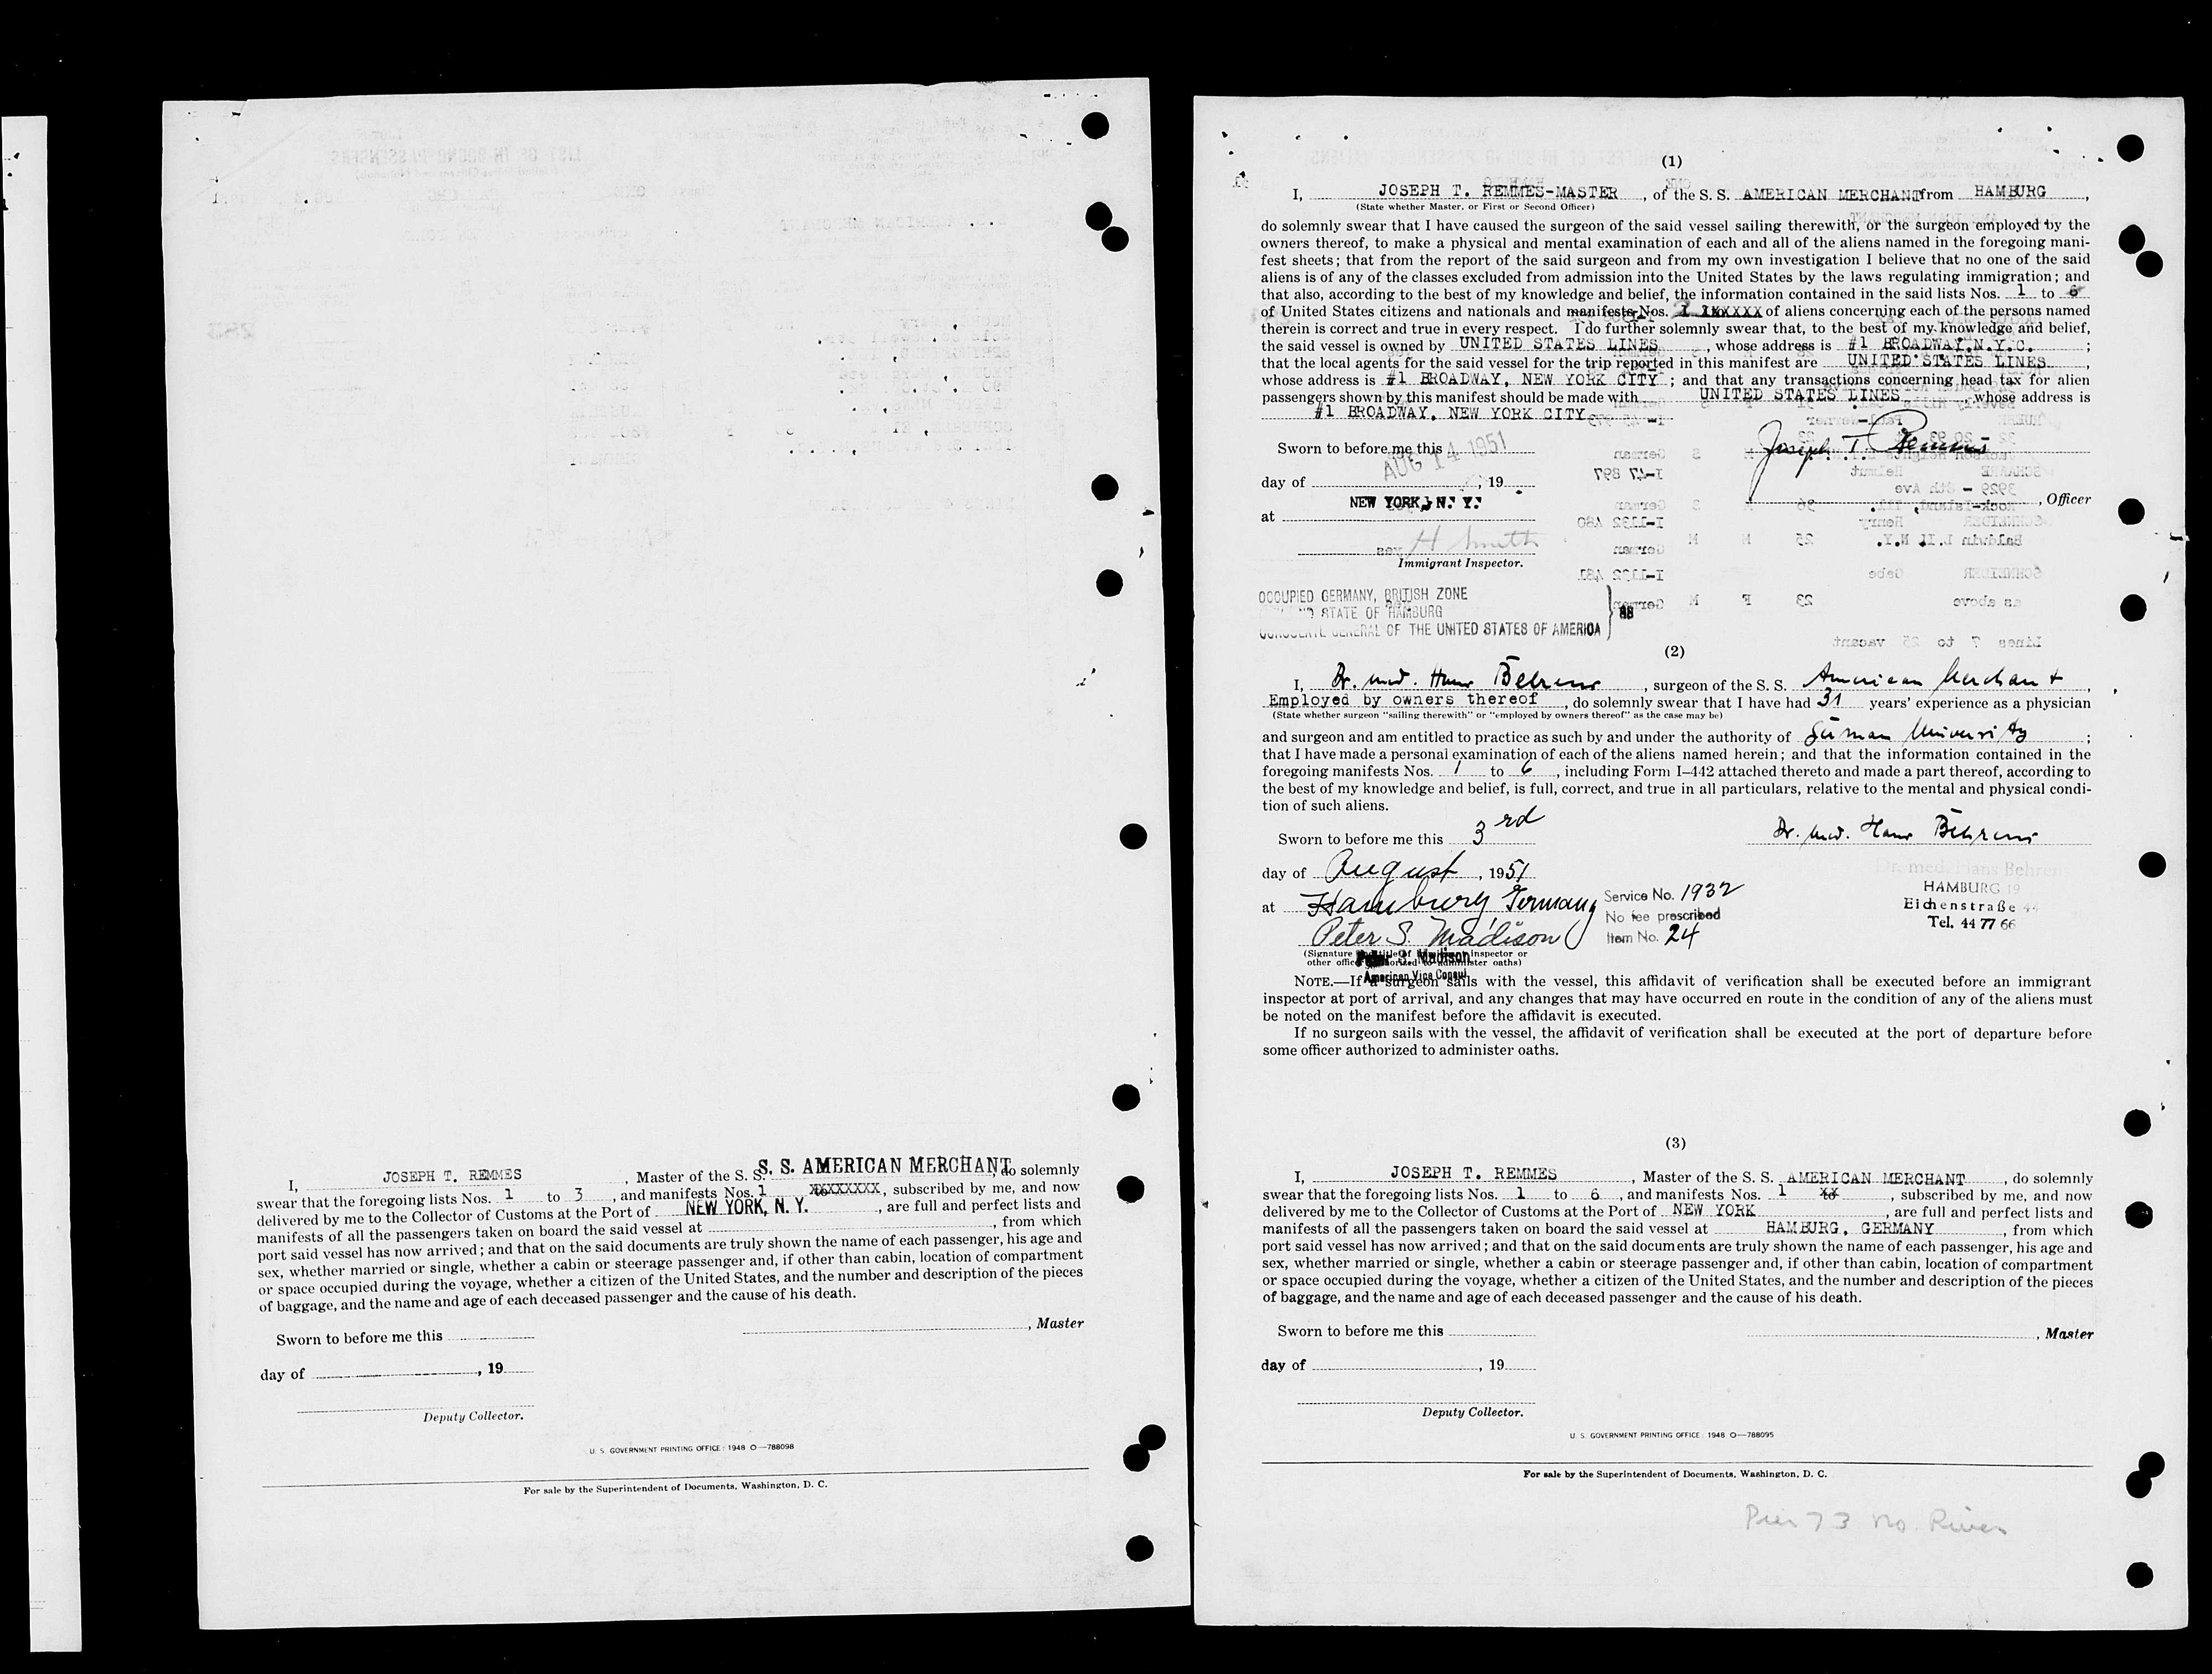 I, JOSEPH T. REMMES, Master of the S. S. S. S. AMERICAN MERCHANT, do solemnly
swear that the foregoing lists Nos. 1 to 3, and manifests Nos. 1 to XXXXXXXX, subscribed by me, and now
delivered by me to the Collector of Customs at the Port of NEW YORK, N. Y., are full and perfect lists and
manifests of all the passengers taken on board the said vessel at , from which
port said vessel has now arrived; and that on the said documents are truly shown the name of each passenger, his age and
sex, whether married or single, whether a cabin or steerage passenger and, if other than cabin, location of compartment
or space occupied during the voyage, whether a citizen of the United States, and the number and description of the pieces
of baggage, and the name and age of each deceased passenger and the cause of his death.
Sworn to before me this
, Master
day of , 19
Deputy Collector.
U. S. GOVERNMENT PRINTING OFFICE: 1948 O—788098
For sale by the Superintendent of Documents, Washington, D. C.
(1)
I, JOSEPH T. REMMES-MASTER, of the S. S. AMERICAN MERCHANT from HAMBURG,
(State whether Master, or First or Second Officer)
do solemnly swear that I have caused the surgeon of the said vessel sailing therewith, or the surgeon employed by the
owners thereof, to make a physical and mental examination of each and all of the aliens named in the foregoing mani-
fest sheets; that from the report of the said surgeon and from my own investigation I believe that no one of the said
aliens is of any of the classes excluded from admission into the United States by the laws regulating immigration; and
that also, according to the best of my knowledge and belief, the information contained in the said lists Nos. 1 to 6
of United States citizens and nationals and manifests Nos. XXXXX of aliens concerning each of the persons named
therein is correct and true in every respect. I do further solemnly swear that, to the best of my knowledge and belief,
the said vessel is owned by UNITED STATES LINES, whose address is #1 BROADWAY.N.Y.C. ;
that the local agents for the said vessel for the trip reported in this manifest are UNITED STATES LINES,
whose address is #1 BROADWAY, NEW YORK CITY; and that any transactions concerning head tax for alien
passengers shown by this manifest should be made with UNITED STATES LINES, whose address is
#1 BROADWAY, NEW YORK CITY
Sworn to before me this AUG 14 1951
Joseph T. Remmes
day of , 19
, Officer
at NEW YORK, N. Y.
H Smith
Immigrant Inspector.
OCCUPIED GERMANY, BRITISH ZONE
STATE OF HAMBURG
CONSULATE GENERAL OF THE UNITED STATES OF AMERICA } SS
(2)
I, Dr. med. Hans Behrens, surgeon of the S. S. American Merchant,
Employed by owners thereof, do solemnly swear that I have had 31 years' experience as a physician
(State whether surgeon "sailing therewith" or "employed by owners thereof" as the case may be)
and surgeon and am entitled to practice as such by and under the authority of German University;
that I have made a personal examination of each of the aliens named herein; and that the information contained in the
foregoing manifests Nos. 1 to 6, including Form I-442 attached thereto and made a part thereof, according to
the best of my knowledge and belief, is full, correct, and true in all particulars, relative to the mental and physical condi-
tion of such aliens.
Sworn to before me this 3rd
Dr. med. Hans Behrens
day of August, 1951
Dr. med. Hans Behrens
HAMBURG 19
Eichenstraße 44
Tel. 44 77 66
at Hamburg, Germany
Service No. 1932
No fee prescribed
Item No. 24
Peter S. Madison
(Signature and title of immigrant inspector or
other officer authorized to administer oaths)
Peter S. Madison
American Vice Consul
NOTE.—If a surgeon sails with the vessel, this affidavit of verification shall be executed before an immigrant
inspector at port of arrival, and any changes that may have occurred en route in the condition of any of the aliens must
be noted on the manifest before the affidavit is executed.
If no surgeon sails with the vessel, the affidavit of verification shall be executed at the port of departure before
some officer authorized to administer oaths.
(3)
I, JOSEPH T. REMMES, Master of the S. S. AMERICAN MERCHANT, do solemnly
swear that the foregoing lists Nos. 1 to 6, and manifests Nos. 1 to, subscribed by me, and now
delivered by me to the Collector of Customs at the Port of NEW YORK, are full and perfect lists and
manifests of all the passengers taken on board the said vessel at HAMBURG, GERMANY, from which
port said vessel has now arrived; and that on the said documents are truly shown the name of each passenger, his age and
sex, whether married or single, whether a cabin or steerage passenger and, if other than cabin, location of compartment
or space occupied during the voyage, whether a citizen of the United States, and the number and description of the pieces
of baggage, and the name and age of each deceased passenger and the cause of his death.
Sworn to before me this
, Master
day of , 19
Deputy Collector.
U. S. GOVERNMENT PRINTING OFFICE: 1948 O—788095
For sale by the Superintendent of Documents, Washington, D. C.
Pier 73 No. River